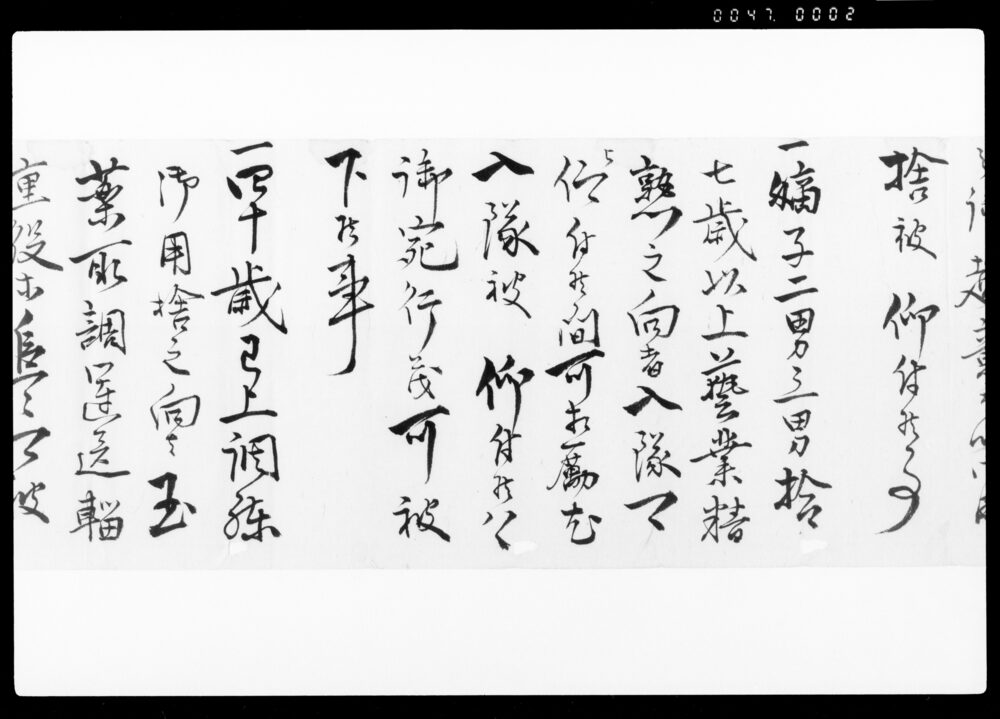 0047. 0002
捨被 仰付候事
一嫡子二男三男拾
七歳以上藝業精
熟之向者入隊可
被 仰付候間可相勵尤
入隊被 仰付候ハヽ
御宛行茂可被
下候事
一四十歳已上調練
御用捨之向者玉
薬取調運送輜
重役等